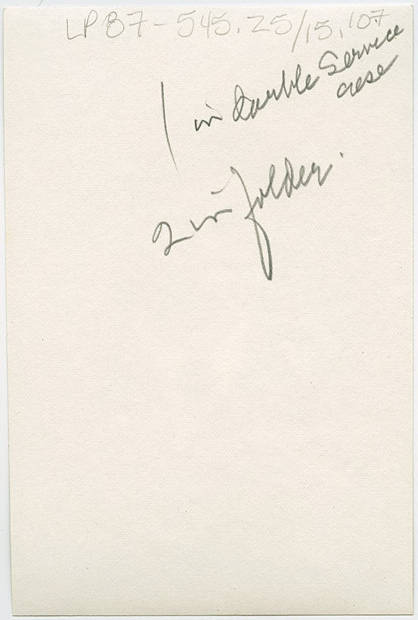 LP87-545.25/15, '07
1 in double Service
case
2 in folder.